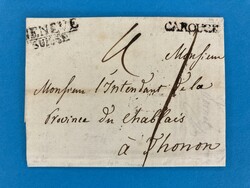 GENEVE
SUISSE
CAROUGE
Monsieur
Monsieur l'Intendant de la
Province du Chablais
à Thonon